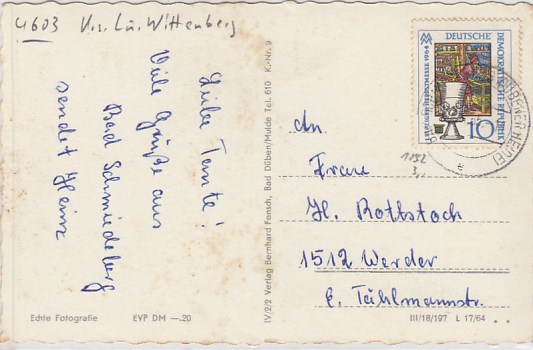 4603 Krs. Lu. Wittenberg
Liebe Tante!
Viele Grüße aus
Bad Schmiedeberg
sendet Heinz
Echte Fotografie EVP DM —.20
IV/2/2 Verlag Bernhard Fensch, Bad Düben/Mulde Tel. 610 K.-Nr. 9
LEIPZIGER FRÜHJAHRSMESSE 1964
DEUTSCHE
DEMOKRATISCHE REPUBLIK
10
DÜBENER HEIDE
e
1012
3,-
An
Frau
H. Rottstock
1512 Werder
E. Tählmannstr.
III/18/197 L 17/64